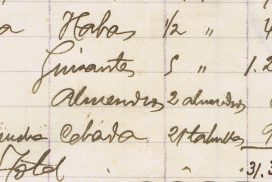 a Habas 1/2 " 4
Guisantes 5 " 1.2
Almendros 2 almudes
Cebada 21 tahullas
Total 31.3